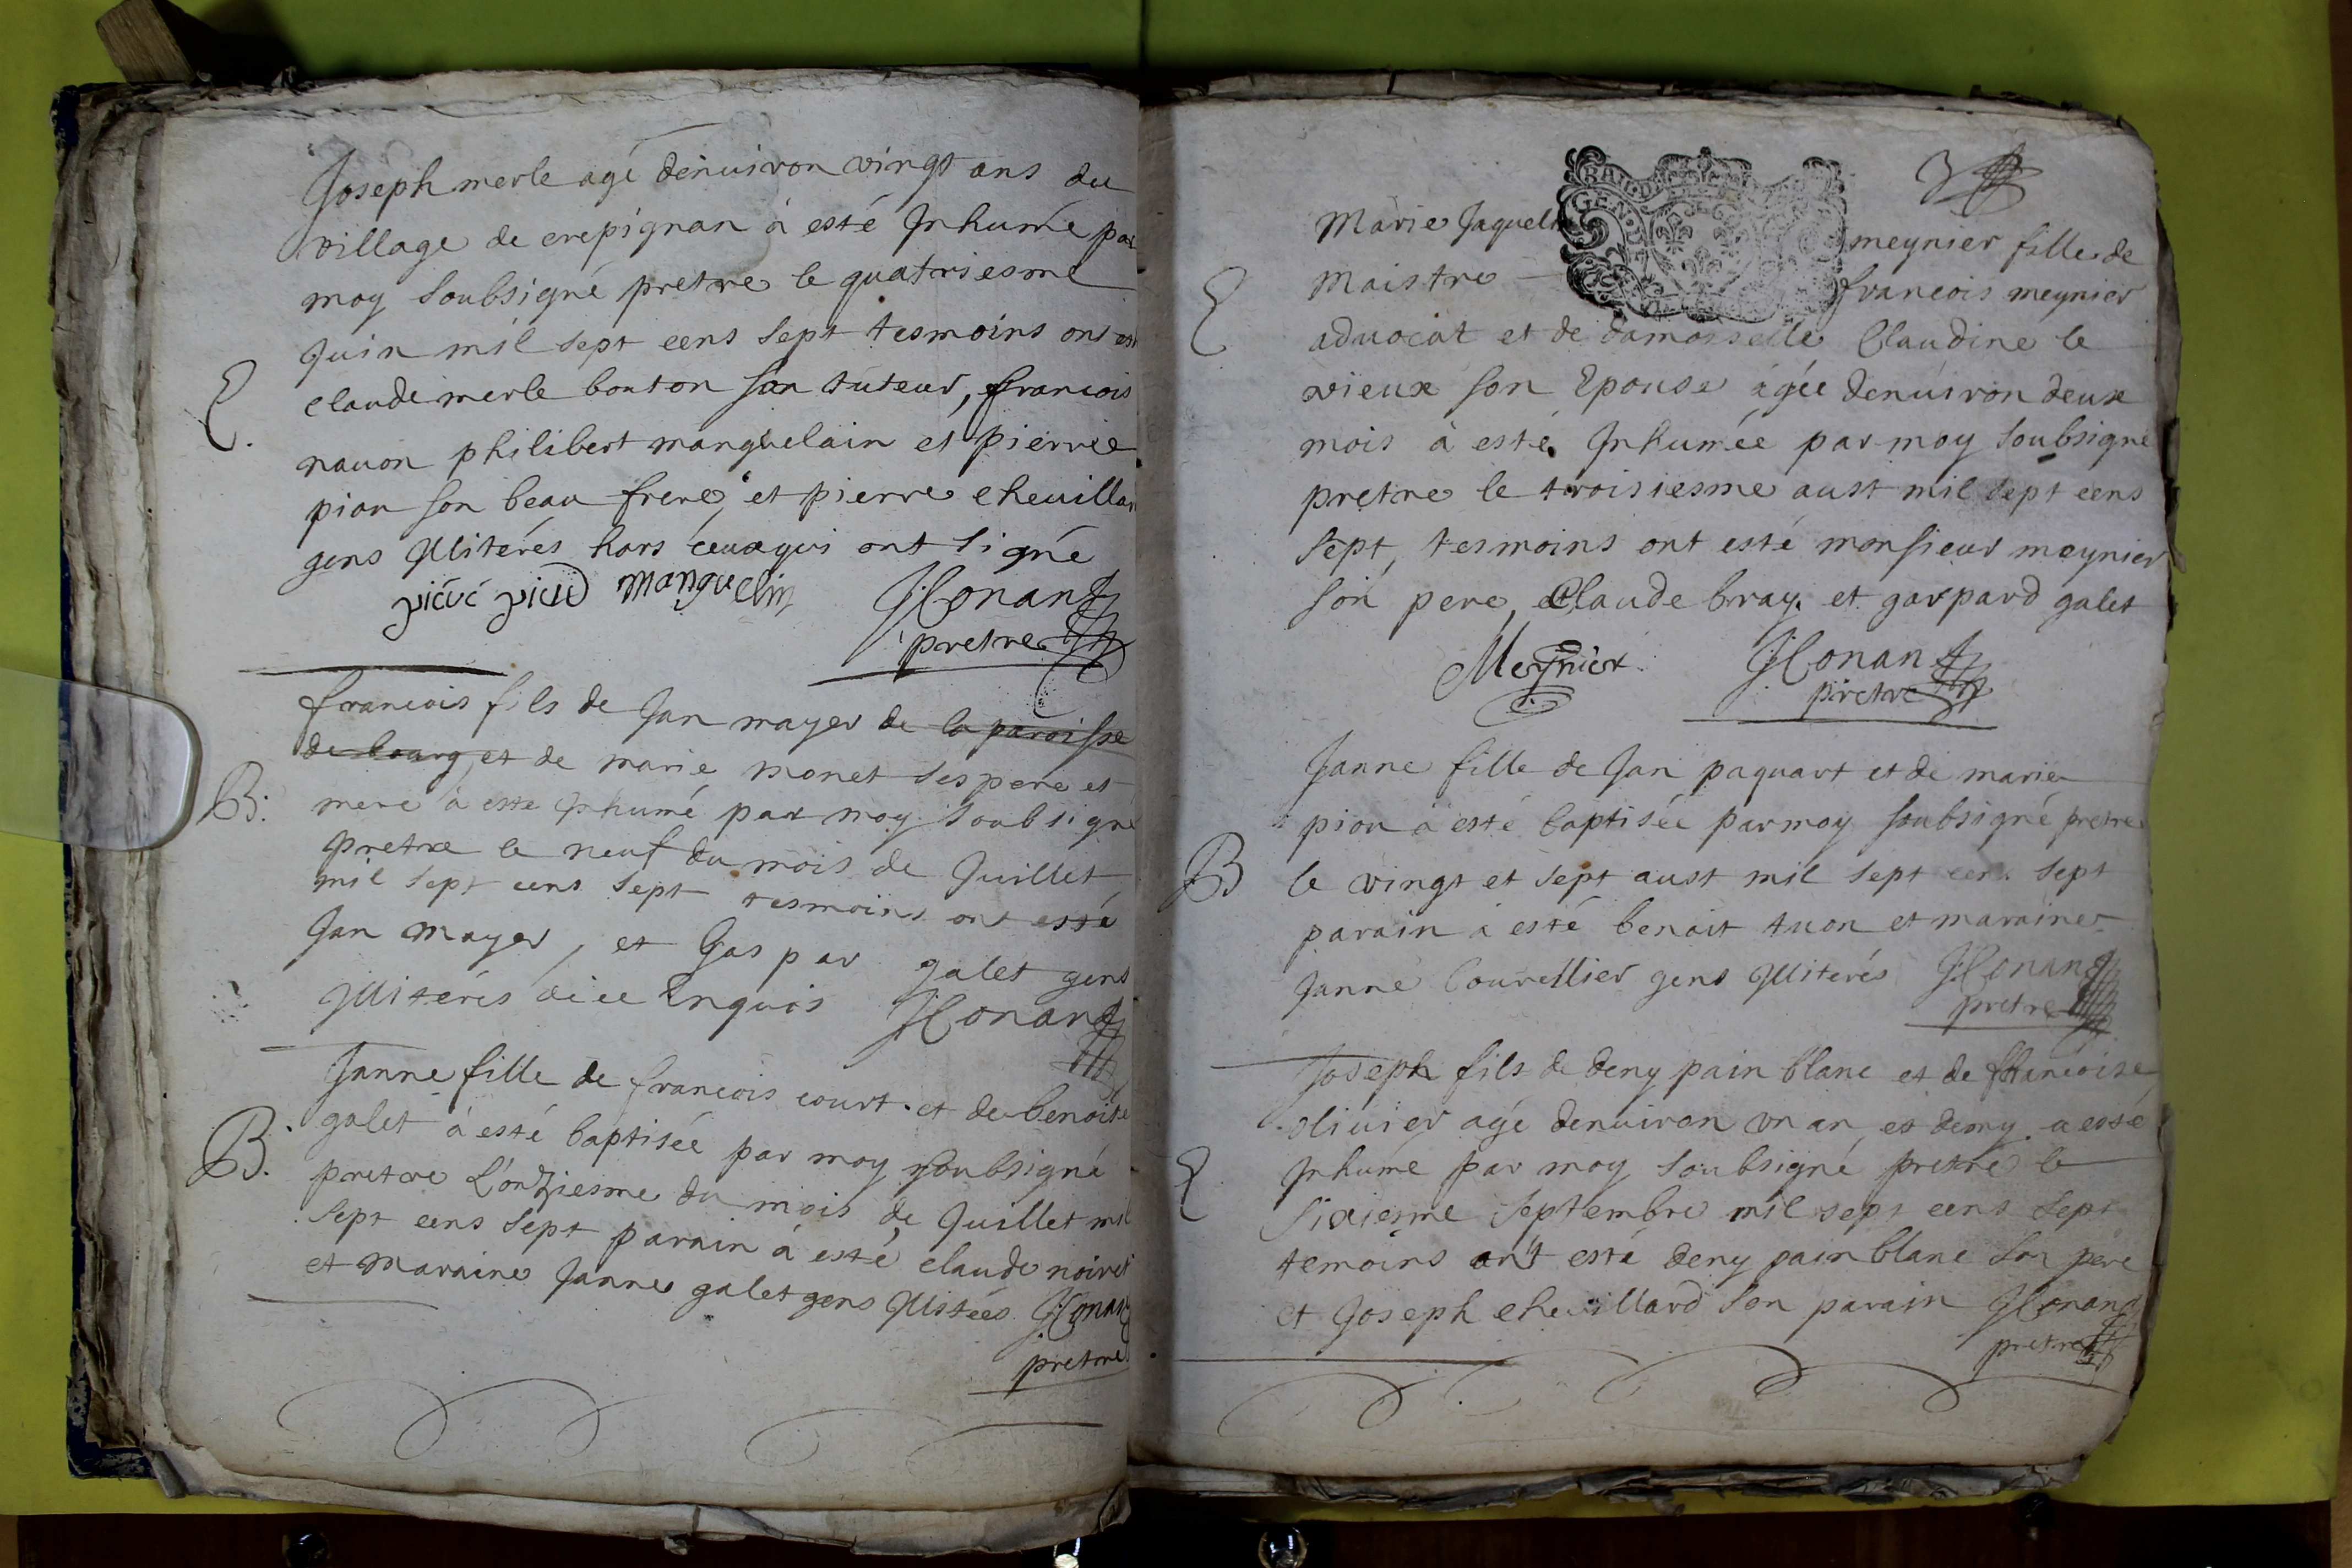 Joseph merle agé denuiron vingt ans du
village de crepignan à esté Inhumé par
moy soubsigné pretre le quatriesme
Juin mil sept cens sept tesmoins ont esté
E. claude merle bouton son tuteur, francois
nauon philibert manguelain et pierre
pion son beau frere, et pierre cheuillar
gens Illiterés hors ceux qui ont signé
manguelin JConand
pretre
francois fils de Jan mayer de la paroisse
de bourg et de marie monet ses pere et
B: mere à esté Inhumé par moy soubsigné
pretre le neuf du mois de Juillet
mil sept cens sept tesmoins ont esté
Jan mayer, et Gaspar galet gens
Illiterés de ce Enquis JConand
Janne fille de francois court. et de benoite
galet à esté baptisée par moy soubsigné
B. pretre L'onziesme du mois de Juillet mil
sept cens sept parain à esté claude noiret
et maraine Janne galet gens Illitées JConand
pretre
GEN. D
Marie Jaquel meynier fille de
E maistre francois meynier
aduocat et de damoiselle Claudine le
vieux son Epouse agée denuiron deux
mois à esté Inhumée par moy soubsigné
pretre le troisiesme aust mil sept cens
sept, tesmoins ont esté monsieur meynier
son pere, Claude bray. et gaspard galet
Meynier JConand
pretre
Janne fille de Jan paquart et de marie
pion à esté baptisée par moy soubsigné pretre
B le vingt et sept aust mil sept cens sept
parain à esté benoit tuon et maraine
Janne Couvellier gens Illiterés JConand
pretre
Joseph fils de deny pain blanc et de francoise
oliuier agé denuiron vn an et demy a esté
E Inhumé par moy soubsigné pretre le
sixiesme septembre mil sept cens sept
temoins ont esté deny pain blanc son pere
et Joseph cheuillard son parain JConand
pretre